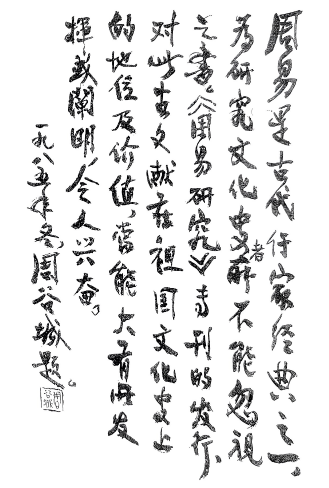 周易是古代儒家经典之一。
为研究文化史者所不能忽视
之书。《周易研究》专刊的发行，
对此古文献在祖国文化史上
的地位及价值，当能大有所发
挥或阐明，令人兴奋。
一九八五年冬，周谷城题。
周谷城